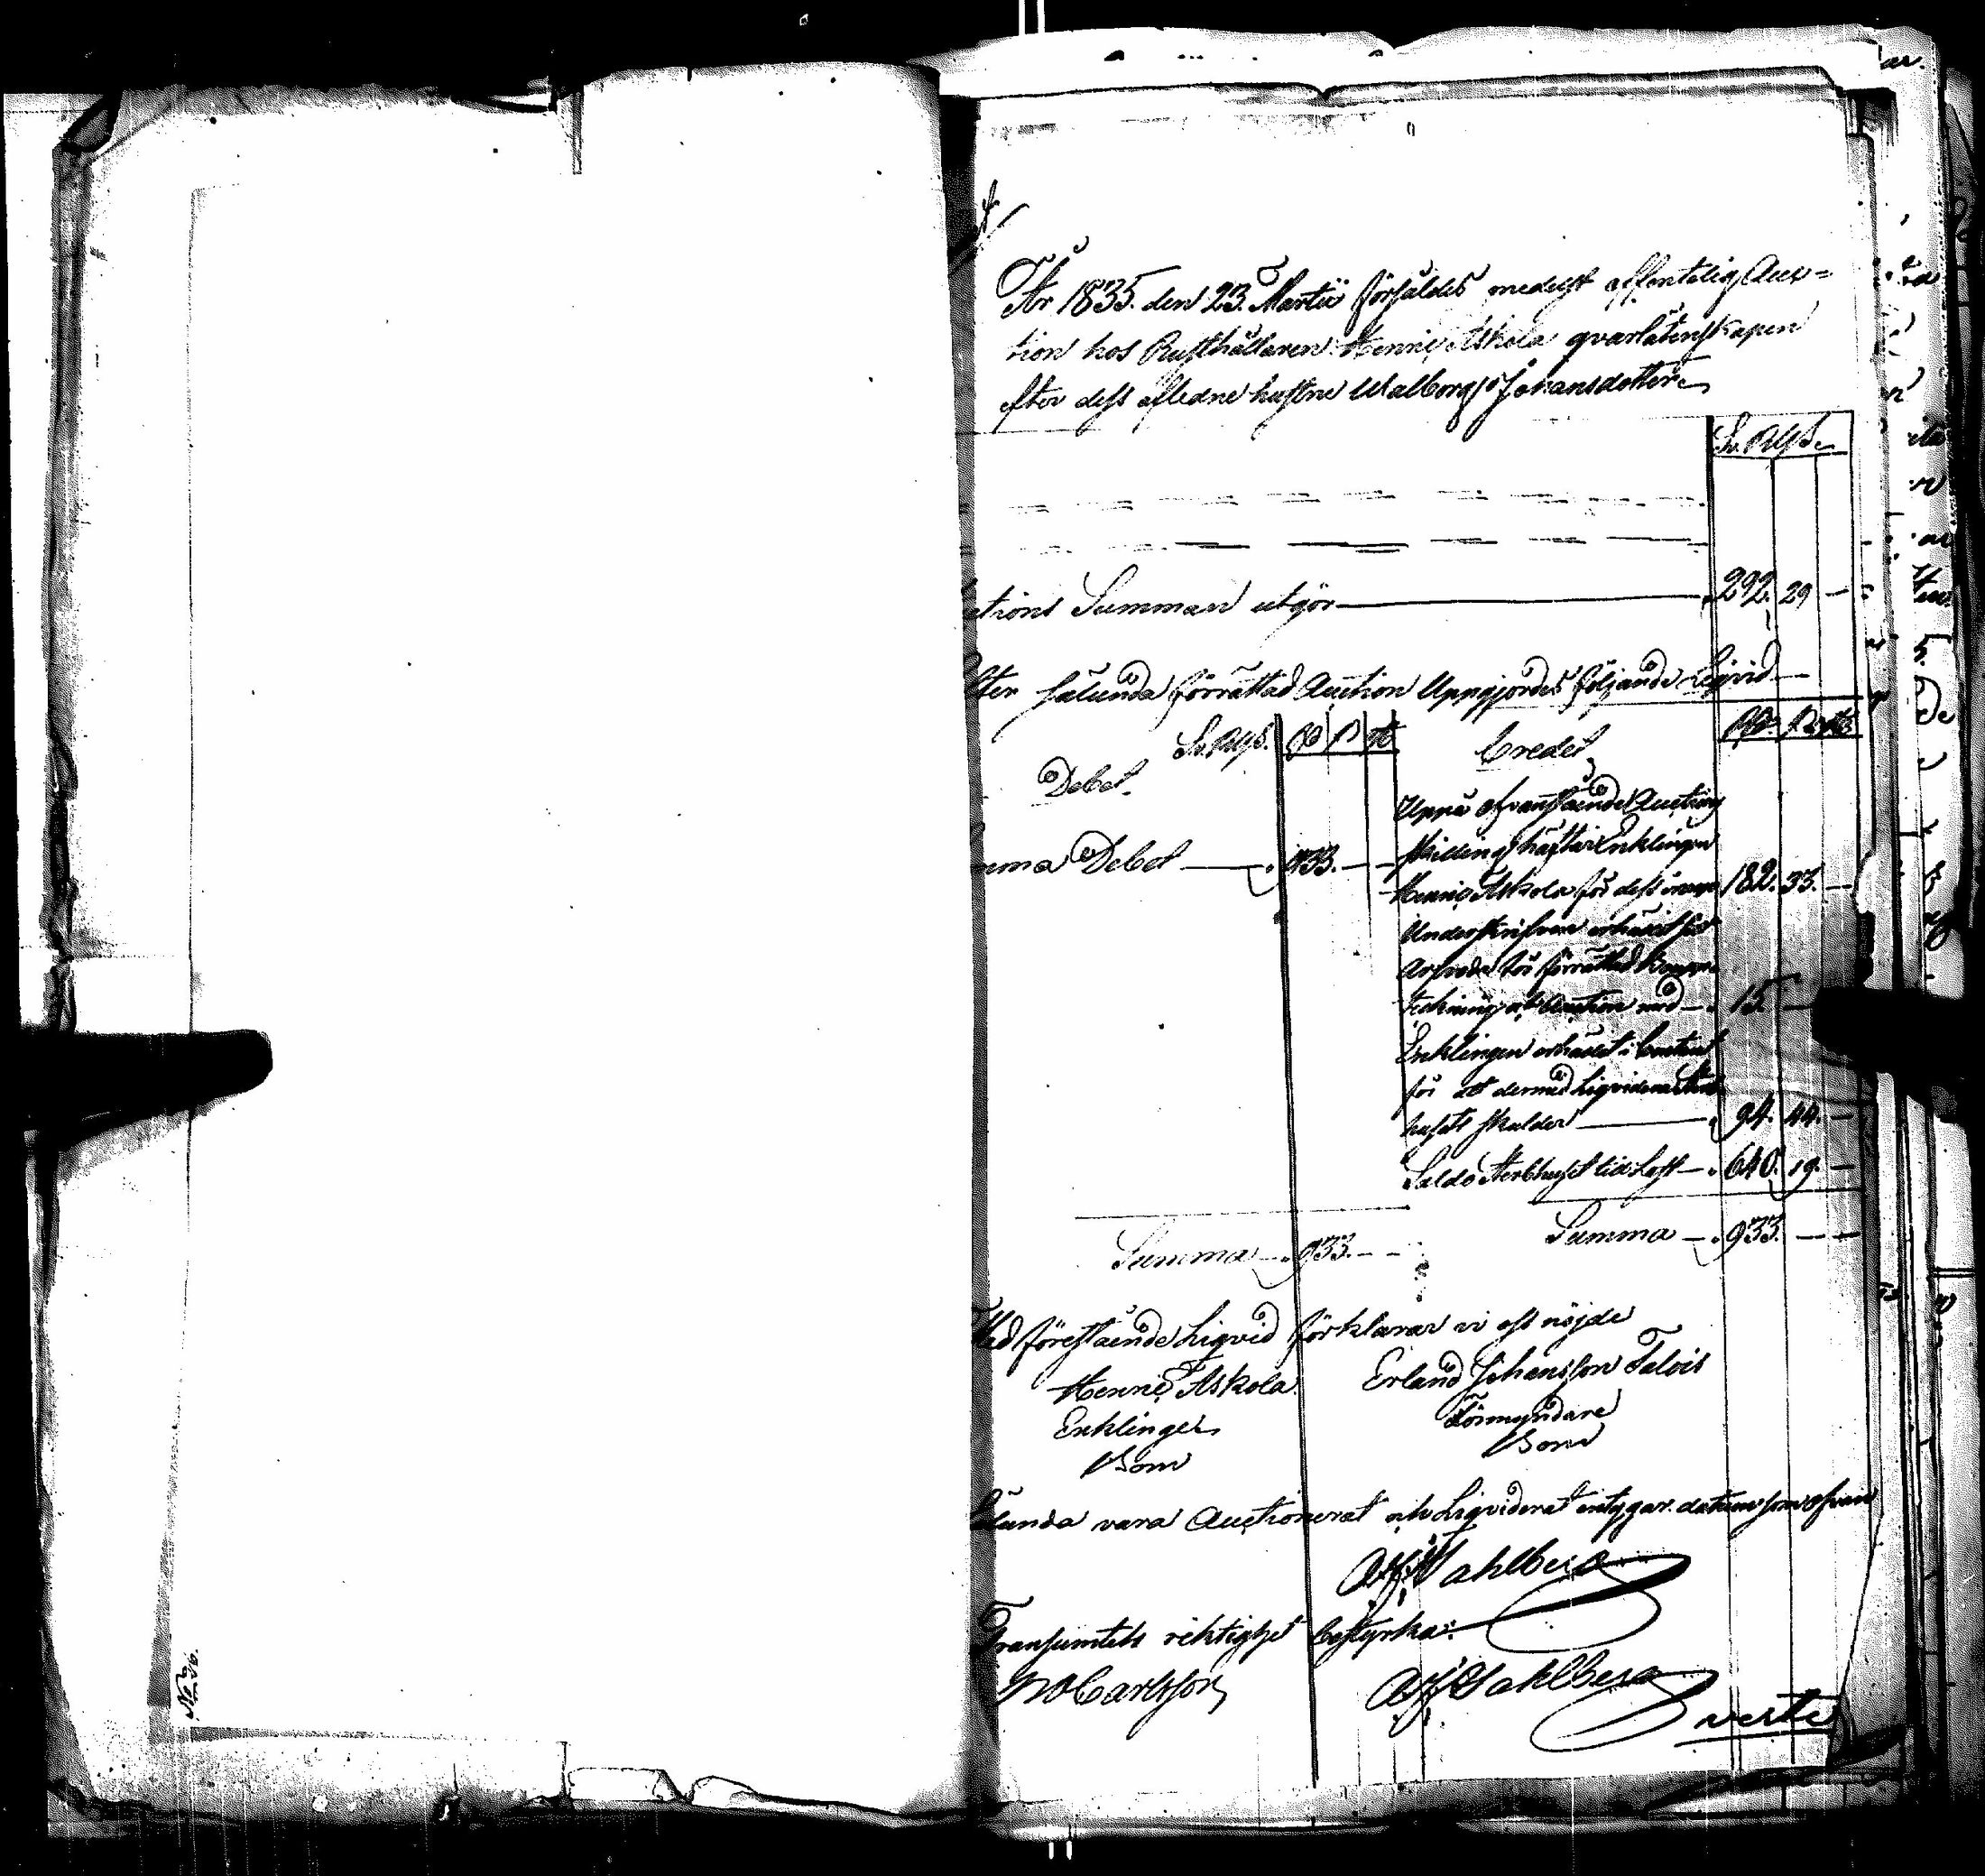 År 1835. den 23. Martii försåldes medelst offentelig Auc=
tion hos Rusthållaren Henric Askola qvarlåtenskapen
efter dess aflednе hustru Walborg Johansdotter
ctions Summan utgör 292. 29 —
fter sålunda förrättad Auction Uppgjordes följande Liqvid
Credet
Debet
Uppå ofvanstående Auctions
skilling häftar Enklingen
mma Debet 933. — —
Henric Askola för dess inrop 182. 33. —
Underskrifven erhållit sitt
arfvode för förrättad
teckning och Auction med 15. —
Enklingen erhållit i Contant
för att dermed Liqvidera
husets skulder 94. 44. —
Saldo Sterbhuset till Last 640. 19. —
Summa 933. — — Summa 933. — —
Med förestående Liqvid förklarar vi oss nöjde
Henric Askola Erland Johansson Talois
Enklingen Förmyndare
Bom Bom
Sålunda vara Auctionerat och Liqviderat intygar. datum som ofvan
Wahlberg
Transumtets riktighet bestyrka:
Carlsson Wahlberg
verte